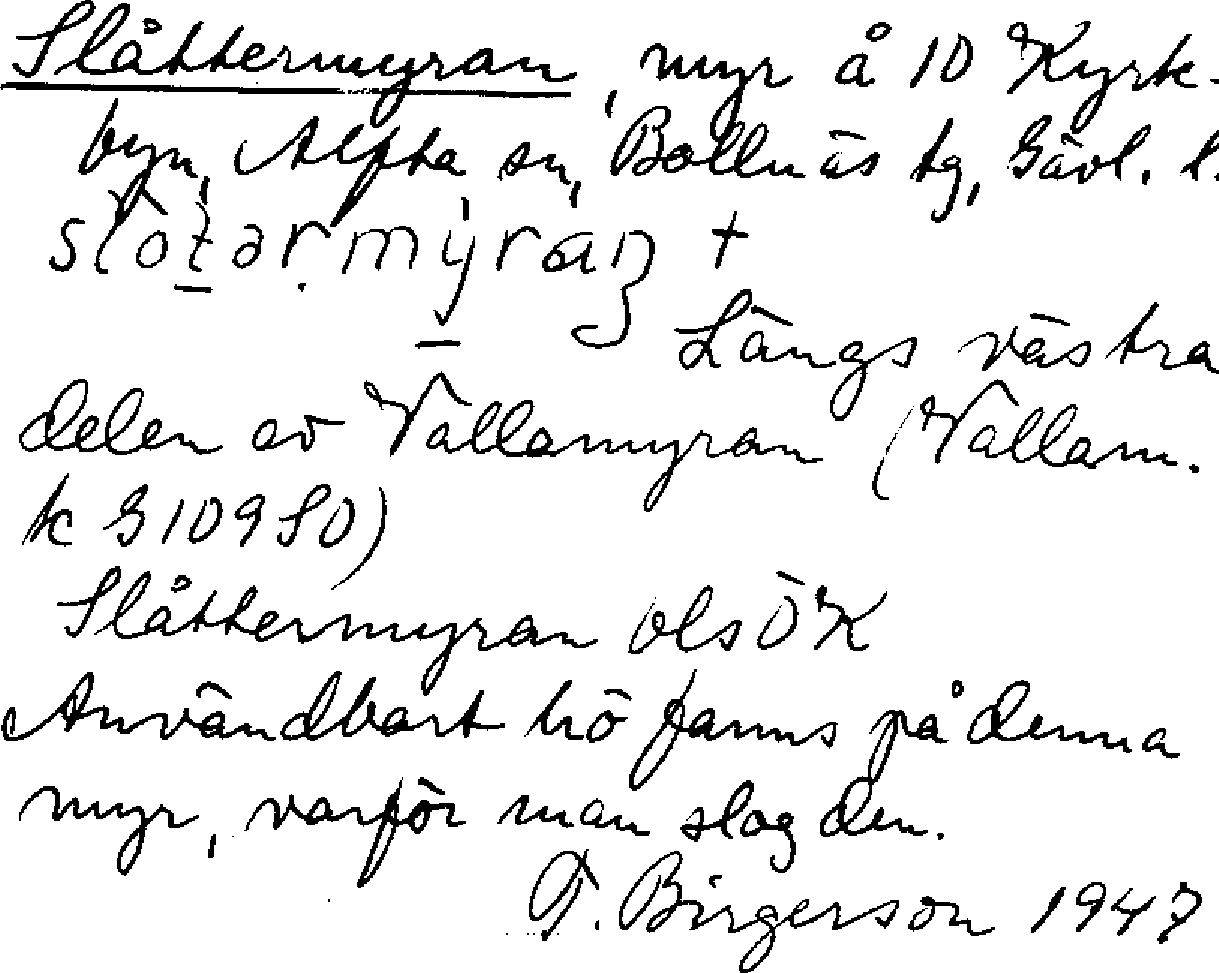 Slåttermyran, myr å 10 Kyrk-
byn, Alfta sn, Bollnäs tg, Gävl. l.
Längs västra
delen av Vallamyran (Vallam.
k G109SO)
Slåttermyran ols ÖK
Användbart hö fanns på denna
myr, varför man slog den.
T. Birgerson 1947